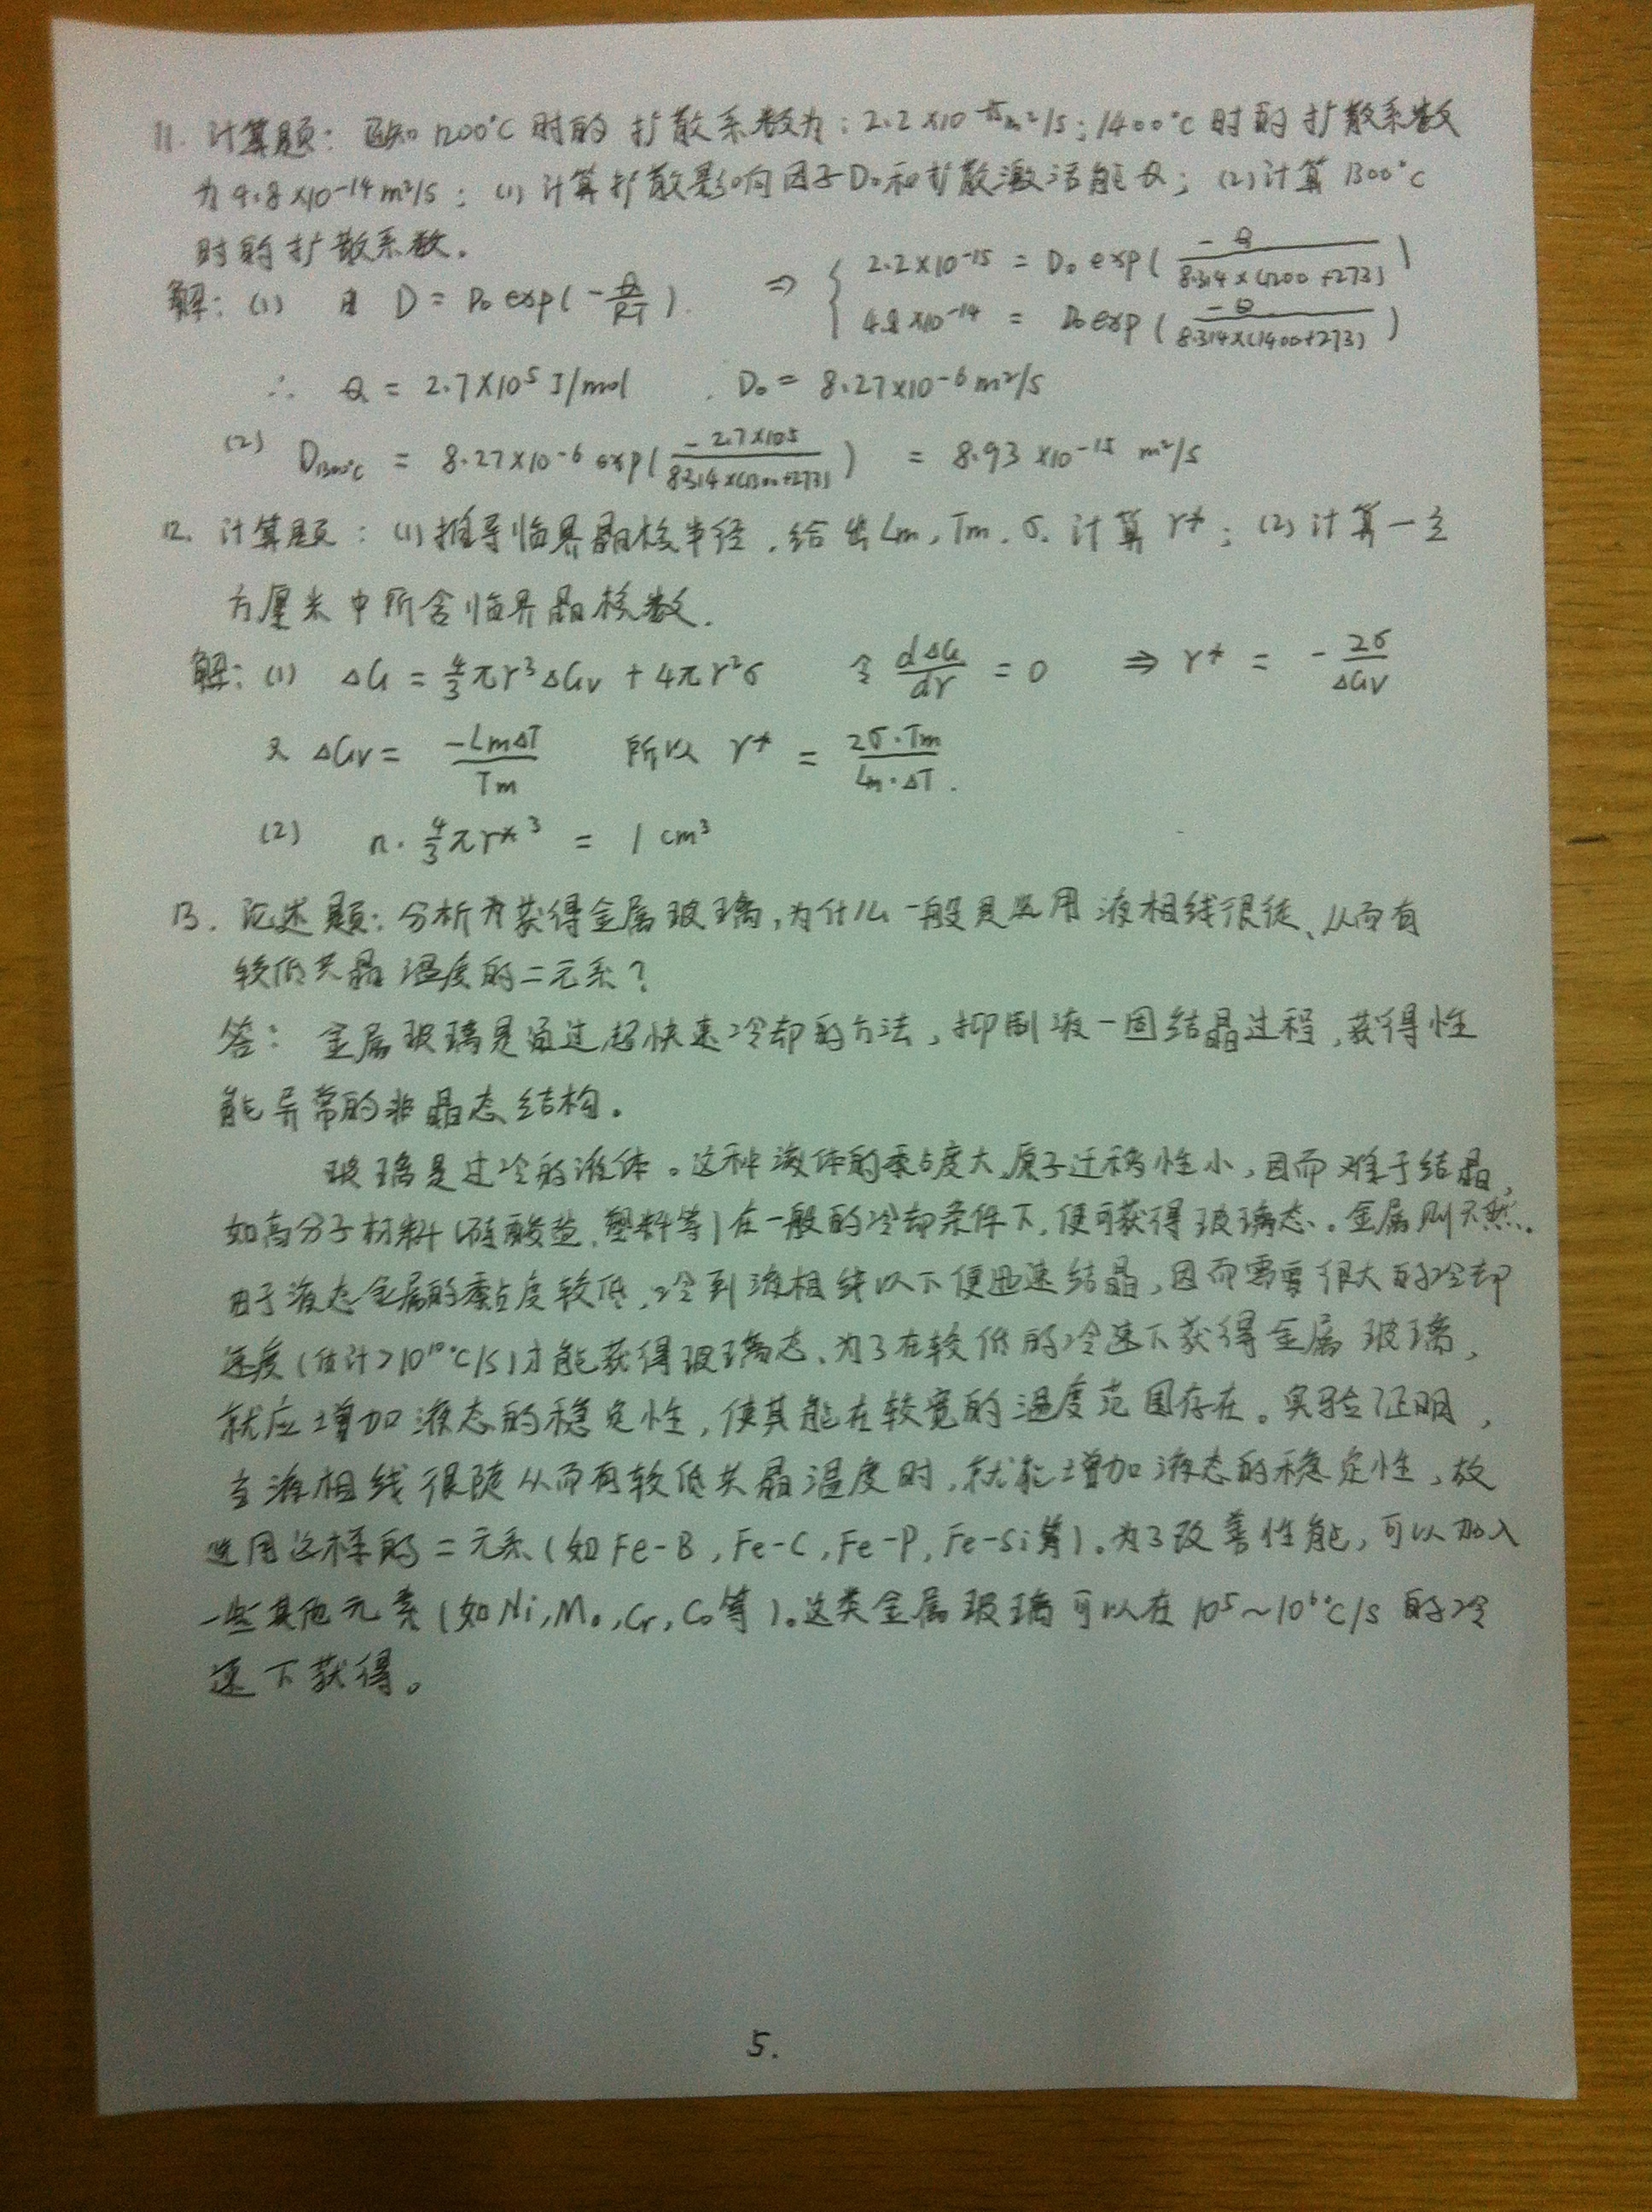 11. 计算题: 已知1200°C时的扩散系数为: 2.2×10⁻¹⁵m²/s; 1400°C时的扩散系数
为4.8×10⁻¹⁴m²/s; (1) 计算扩散影响因子D₀和扩散激活能Q; (2)计算1300°C
时的扩散系数.
解: (1) 由 D = D₀ exp(-Q/RT). ⇒ { 2.2×10⁻¹⁵ = D₀ exp(-Q/8.314×(1200+273))
4.8×10⁻¹⁴ = D₀ exp(-Q/8.314×(1400+273))
∴ Q = 2.7×10⁵ J/mol . D₀ = 8.27×10⁻⁶ m²/s
(2) D1300°C = 8.27×10⁻⁶ exp(-2.7×10⁵/8.314×(1300+273)) = 8.93×10⁻¹⁵ m²/s
12. 计算题: (1)推导临界晶核半径, 给出Lm, Tm, σ. 计算 r*; (2)计算一立
方厘米中所含临界晶核数.
解: (1) ΔG = 4/3πr³ΔGv + 4πr²σ 令 dΔG/dr = 0 ⇒ r* = -2σ/ΔGv
又 ΔGv = -LmΔT/Tm 所以 r* = 2σ·Tm/Lm·ΔT.
(2) n·4/3πr*³ = 1 cm³
13. 论述题: 分析为获得金属玻璃,为什么一般是选用液相线很陡、从而有
较低共晶温度的二元系?
答: 金属玻璃是通过超快速冷却的方法, 抑制液-固结晶过程, 获得性
能异常的非晶态结构。
玻璃是过冷的液体。这种液体的黏度大,原子迁移性小, 因而难于结晶,
如高分子材料(硅酸盐、塑料等)在一般的冷却条件下, 便可获得玻璃态。金属则不然.
由于液态金属的黏度较低,冷到液相线以下便迅速结晶, 因而需要很大的冷却
速度(估计>10¹⁰°C/s)才能获得玻璃态、为了在较低的冷速下获得金属玻璃,
就应增加液态的稳定性, 使其能在较宽的温度范围存在。实验证明,
当液相线很陡从而有较低共晶温度时, 就能增加液态的稳定性, 故
选用这样的二元系(如Fe-B, Fe-C, Fe-P, Fe-Si等)。为了改善性能, 可以加入
一些其他元素(如Ni, Mo, Cr, Co等)。这类金属玻璃可以在10⁵~10⁶°C/s的冷
速下获得。
5.